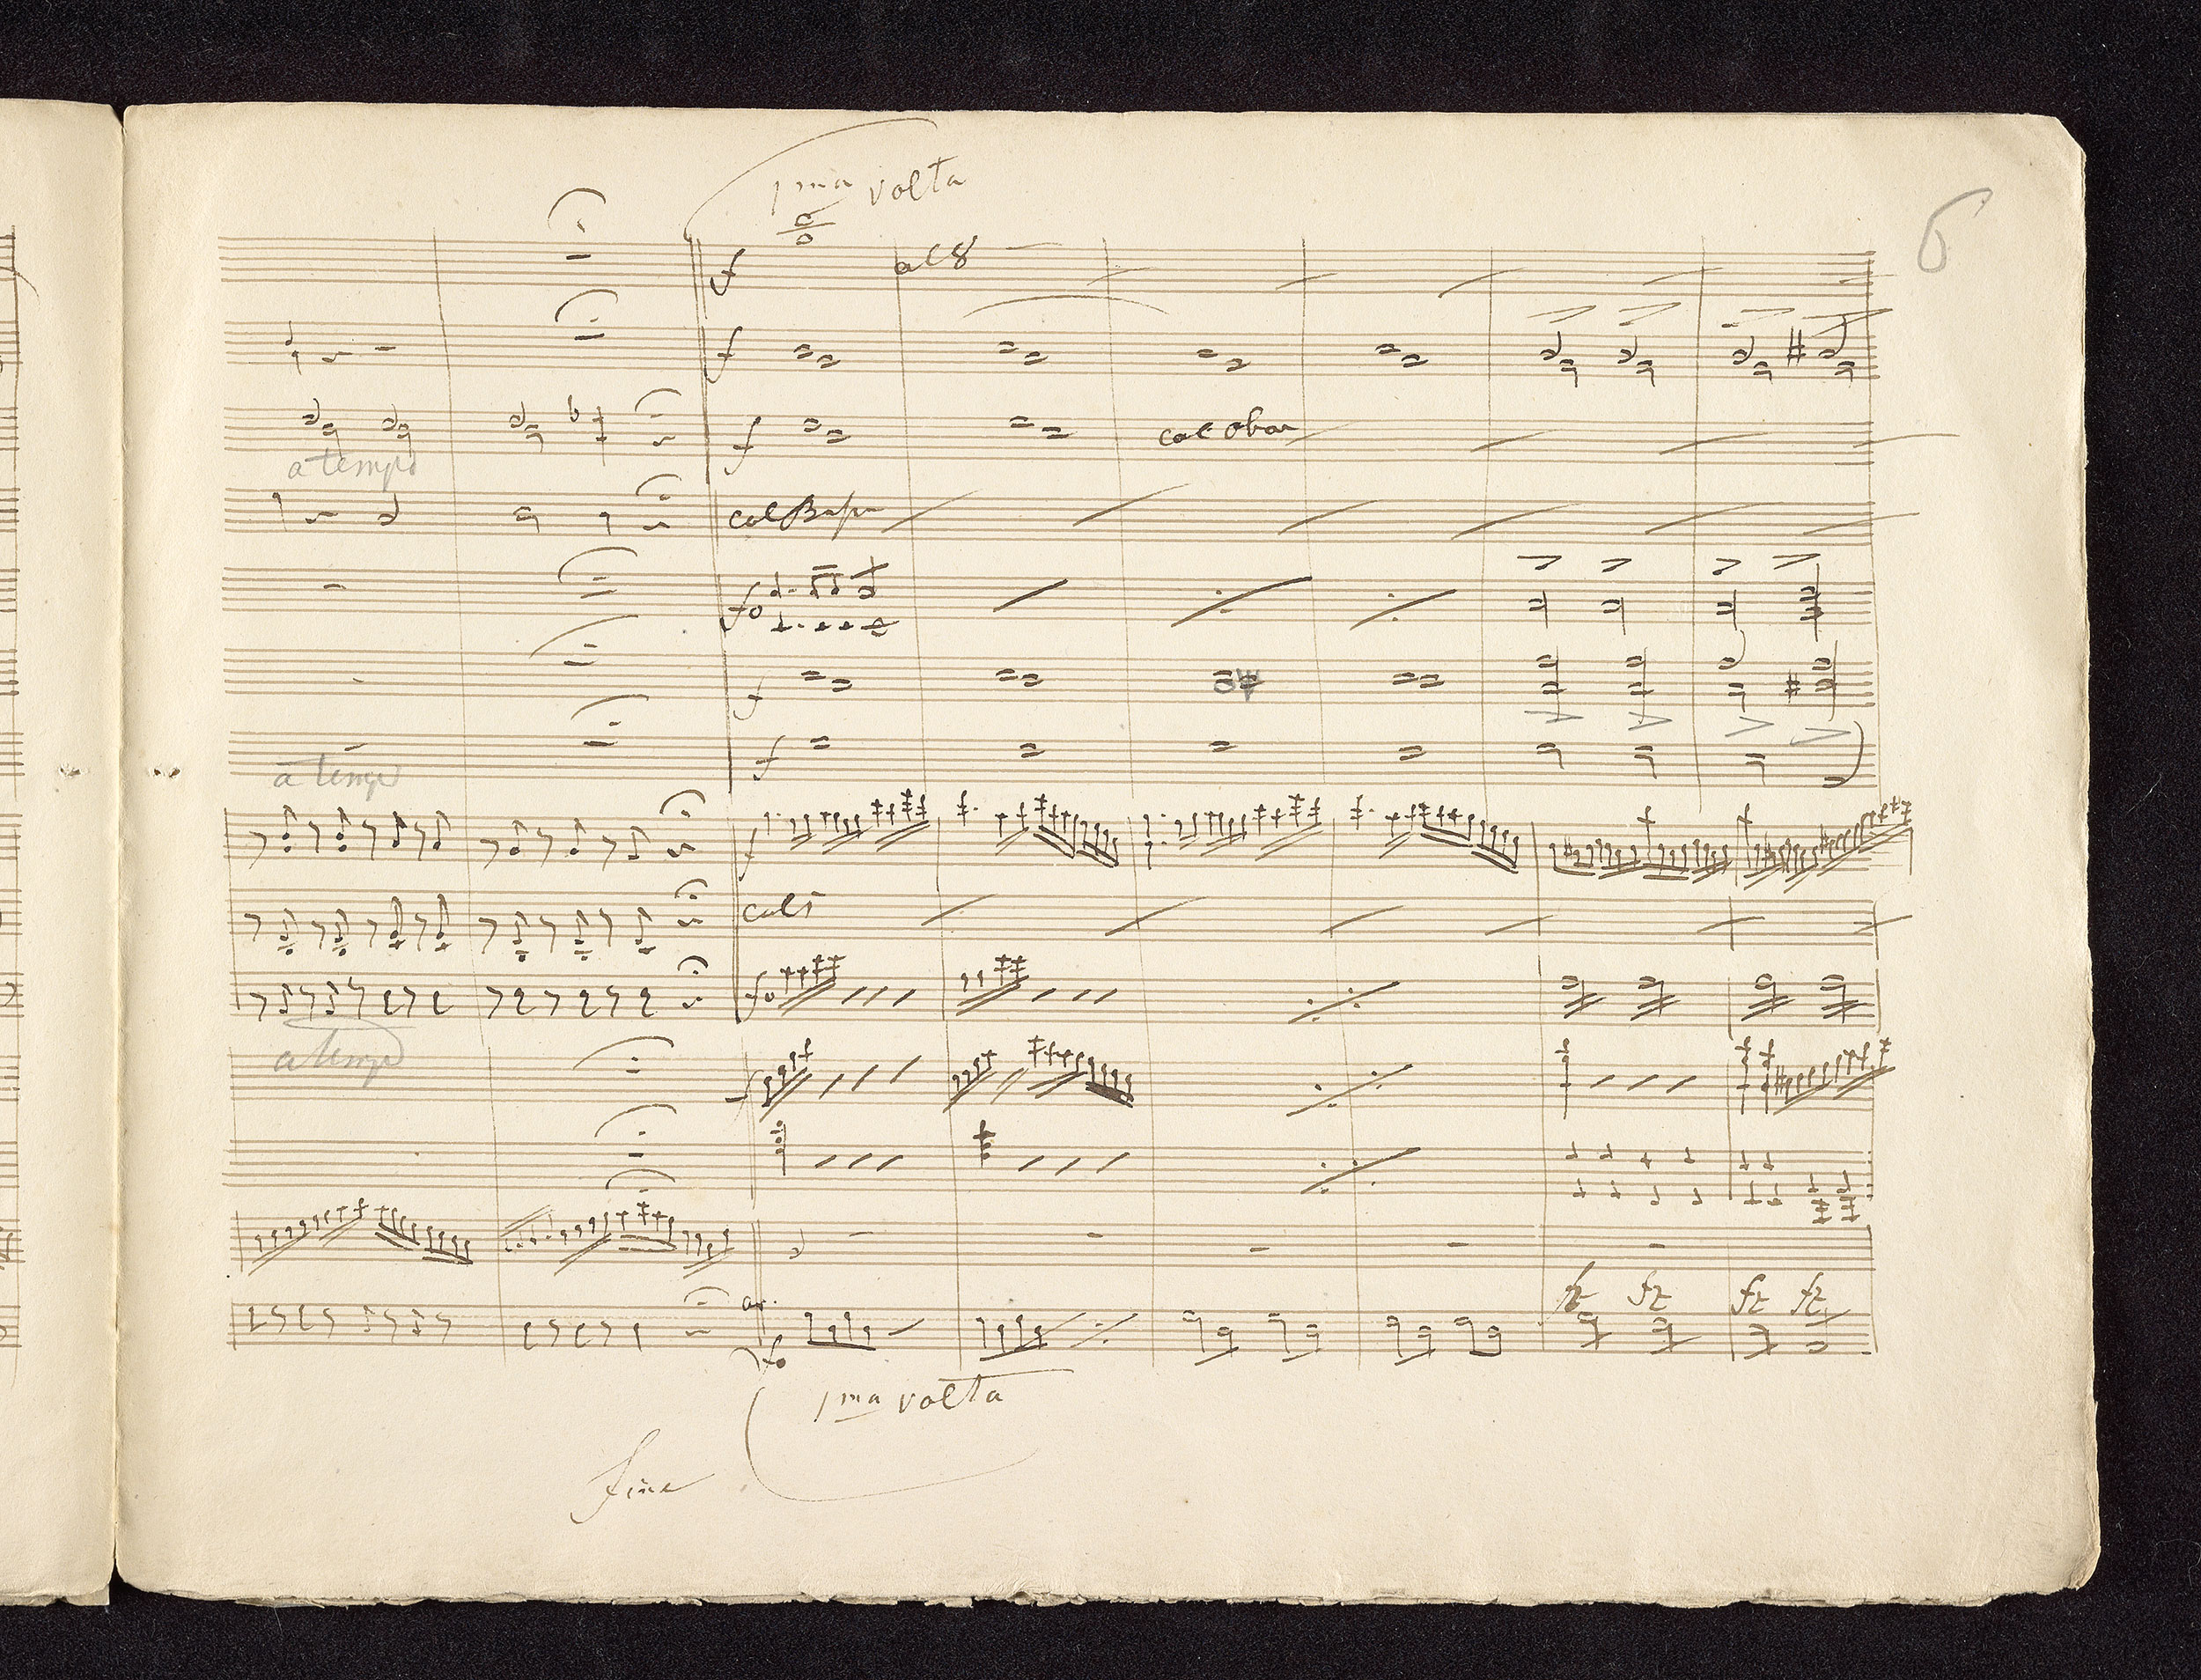 1ma volta
6
f al 8
f
f col oboe
a tempo
col Basso
fo
f
f
a tempo
f
col 1
fo
a tempo
f
fz fz fz fz
ar.
fo
1ma volta
fine